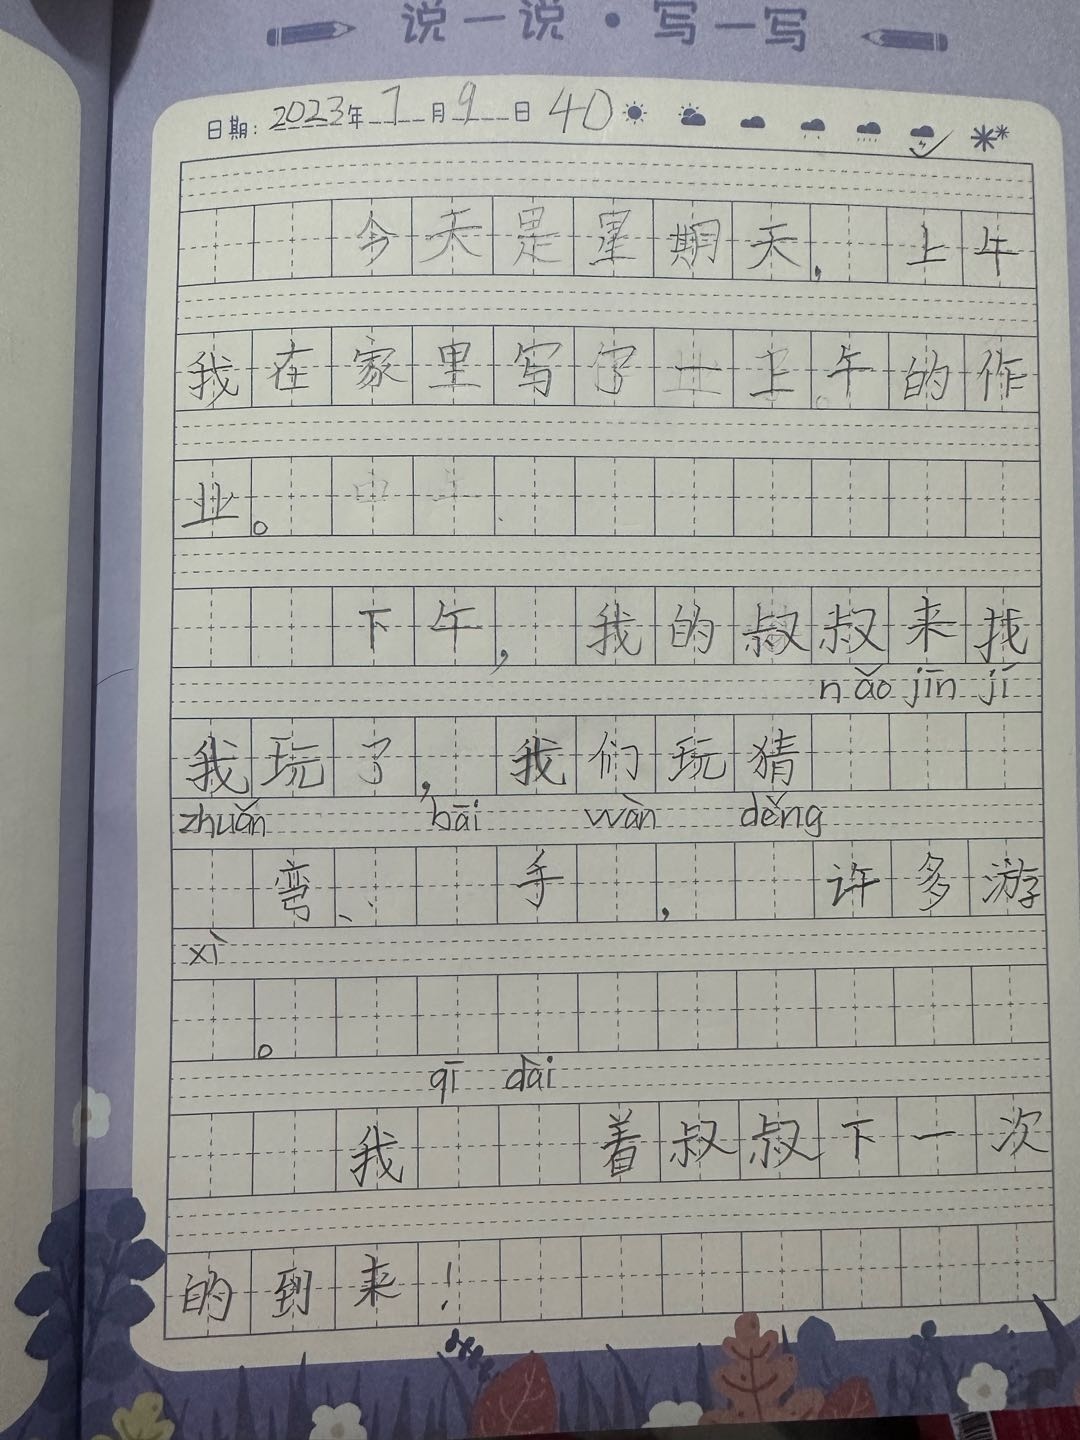 说一说·写一写
日期：2023年7月9日 40
今天是星期天，上午
我在家里写了一上午的作
业。
下午，我的叔叔来找
nǎo jīn jí
我玩了，我们玩猜
zhuǎn bāi wàn děng
弯、手，许多游
xì
。
qī dài
我着叔叔下一次
的到来！